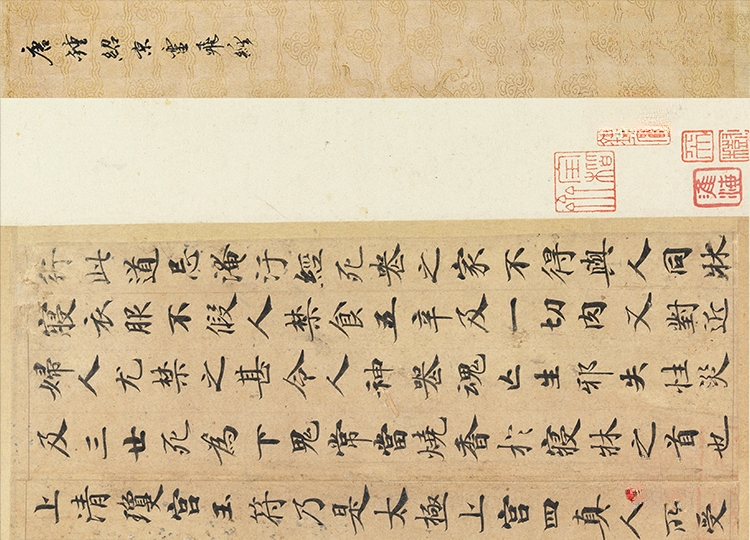 唐鍾紹京靈飛經
行此道忌淹汙經死喪之家不得與人同牀
寢衣服不假人禁食五辛及一切肉又對近
婦人尤禁之甚令人神喪魂亡生邪失性災
及三世死為下鬼常當燒香於寢牀之首也
上清瓊宮玉符乃是太極上宮四真人所受